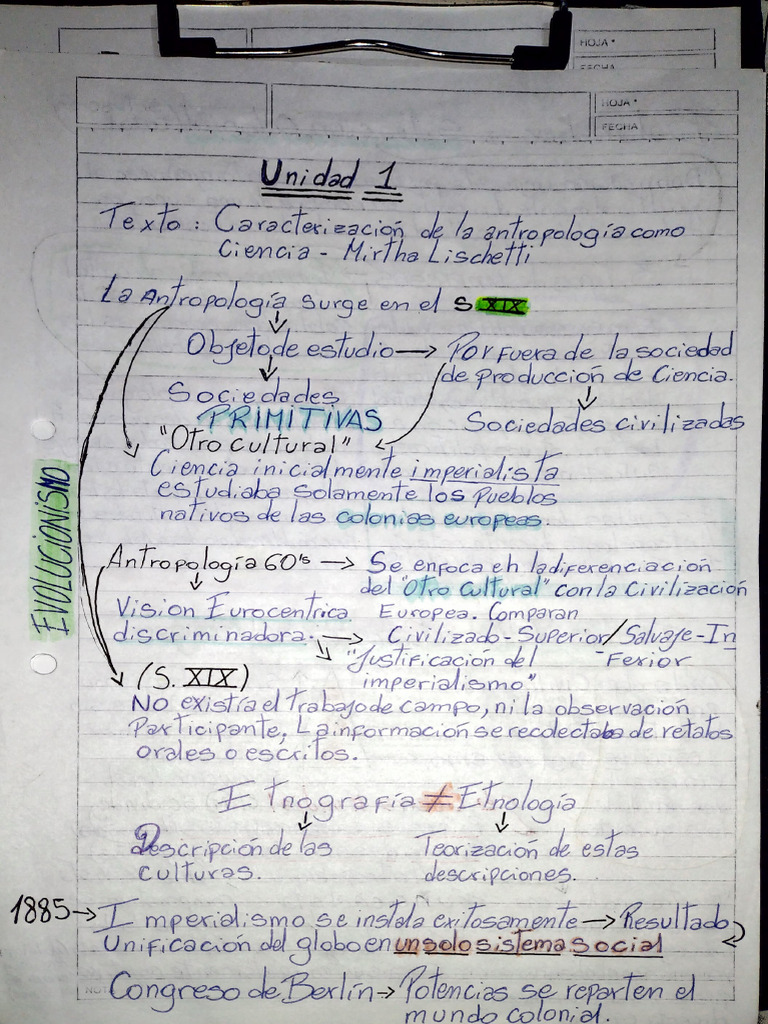 HOJA •
FECHA
HOJA •
FECHA
Unidad 1
Texto : Caracterización de la antropología como
Ciencia - Mirtha Lischetti
La Antropología surge en el S XIX
Objeto de estudio → Por fuera de la sociedad
de producción de Ciencia.
Sociedades
PRIMITIVAS
Sociedades civilizadas
"Otro cultural"
Ciencia inicialmente imperialista
estudiaba solamente los pueblos
nativos de las colonias europeas.
EVOLUCIONISMO
Antropología 60's → Se enfoca en la diferenciación
del "Otro cultural" con la Civilización
Europea. Comparan
Vision Eurocentrica
discriminadora. → Civilizado-Superior/Salvaje-In
-Ferior
"Justificación del
imperialismo"
(S. XIX)
No existía el trabajo de campo, ni la observación
Participante, La información se recolectaba de relatos
orales o escritos.
Etnografía ≠ Etnología
Descripción de las
culturas.
Teorización de estas
descripciones.
1885 → Imperialismo se instala exitosamente → Resultado
Unificación del globo en un solo sistema social
Congreso de Berlín → Potencias se reparten el
mundo colonial.